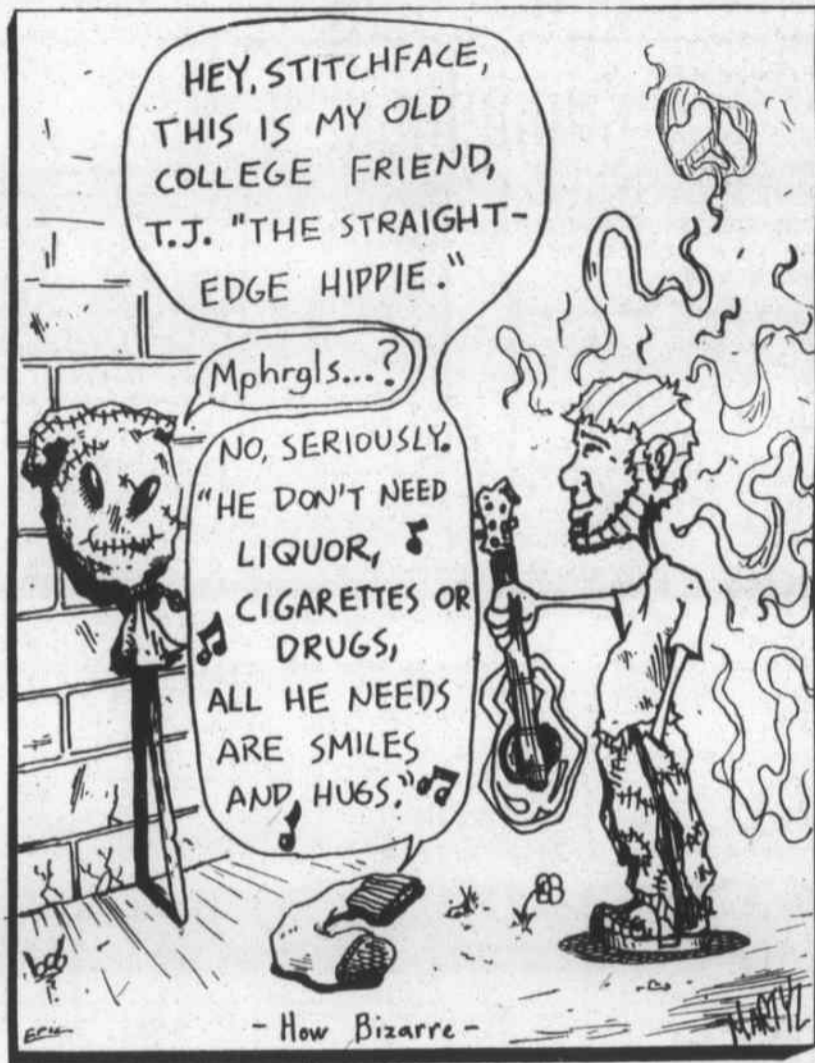 HEY, STITCHFACE,
THIS IS MY OLD
COLLEGE FRIEND,
T.J. "THE STRAIGHT-
EDGE HIPPIE."
Mphrgls...?
NO, SERIOUSLY.
"HE DON'T NEED
LIQUOR,
CIGARETTES OR
DRUGS,
ALL HE NEEDS
ARE SMILES
AND HUGS."
bob
- How Bizarre -